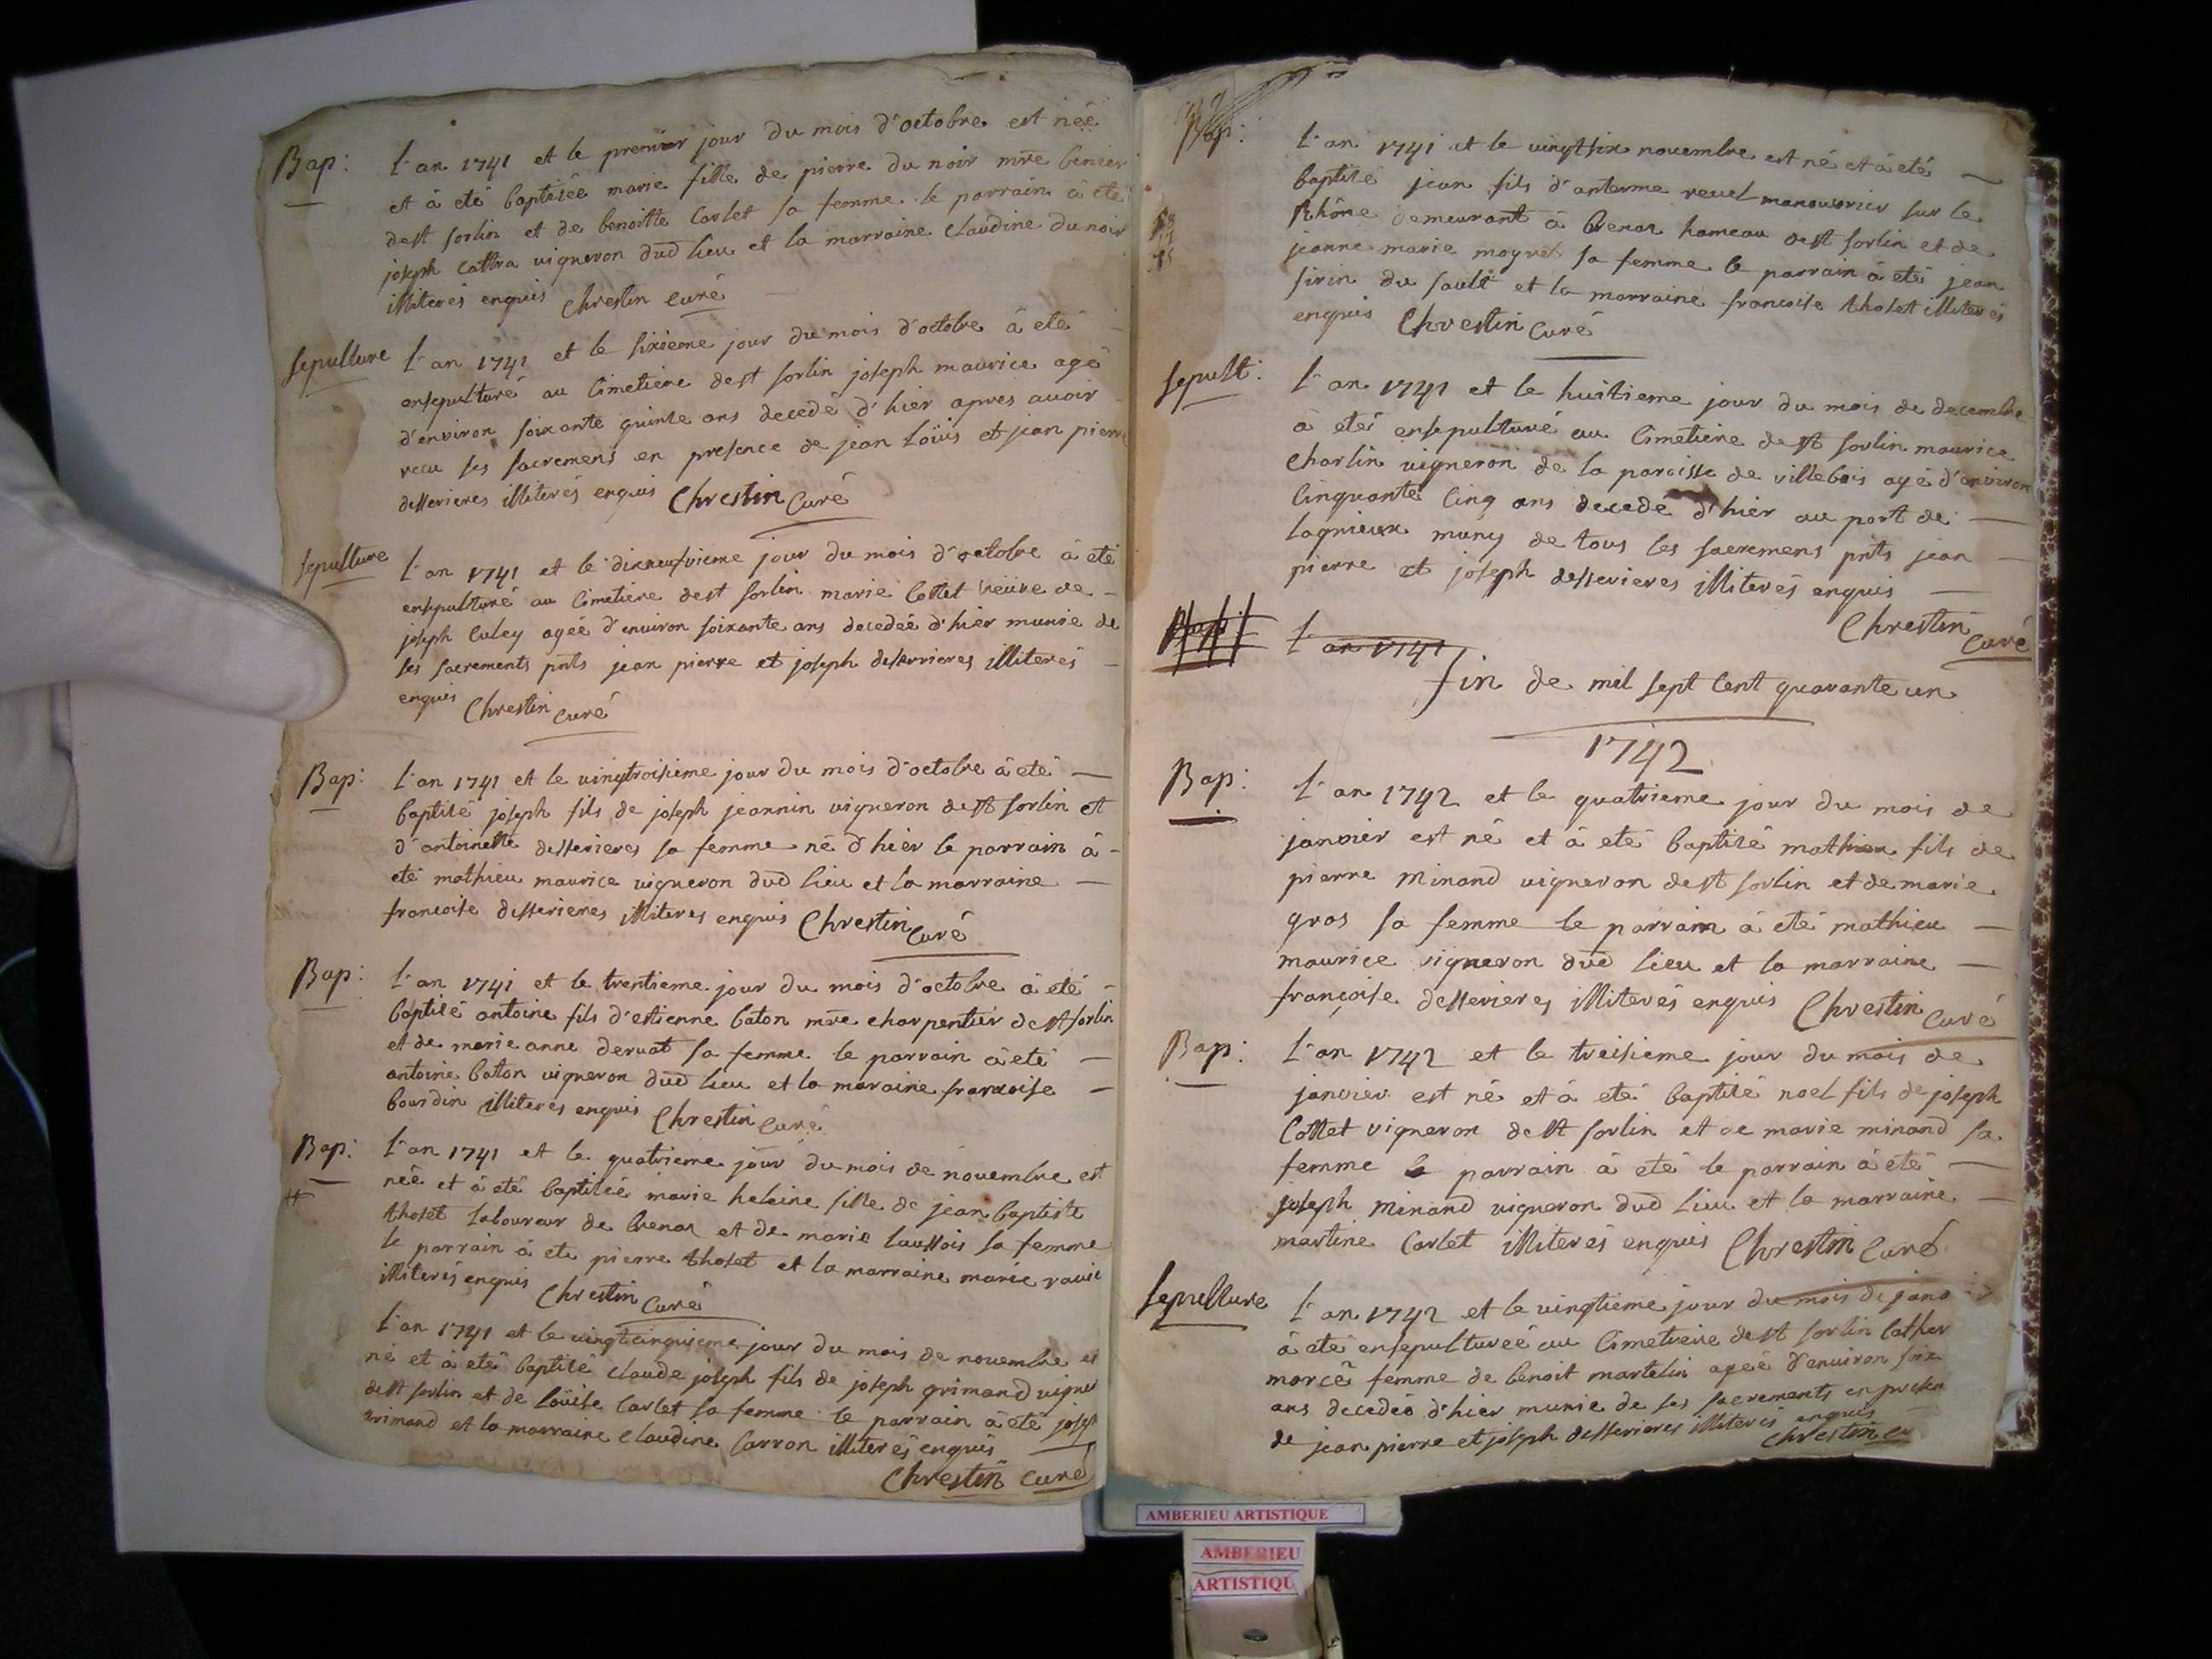 Bap: l'an 1741 et le premier jour du mois d'octobre est née
et à eté baptisée marie fille de pierre du noir mre
dest sorlin et de benoitte Carlet sa femme le parrain à eté
joseph cattra vigneron dud lieu et la marraine Claudine du noir
illiterés enquis Chrestin Curé
sepulture l'an 1741 et le sixieme jour du mois d'octobre à eté
ensepulturé au Cimetiere dest sorlin joseph maurice agé
d'environ soixante quinse ans decedé d'hier apres avoir
recu ses sacremens en presence de jean Loüis et jean pierre
desserieres illiterés enquis Chrestin Curé
sepulture l'an 1741 et le dixneufvieme jour du mois d'octobre à eté
ensepulturé au Cimetiere dest sorlin marie Cottet veüve de
joseph Culey agée d'environ soixante ans decedeé d'hier munie de
ses sacrements pnts jean pierre et joseph deserrieres illiterés
enquis Chrestin Curé
Bap: l'an 1741 et le vingtroisieme jour du mois d'octobre à eté
baptisé joseph fils de joseph jeannin vigneron dest sorlin et
d'antoinette desserieres sa femme né d'hier le parrain à
eté mathieu maurice vigneron dud lieu et la marraine
francoise desserieres illiterés enquis Chrestin Curé
Bap: l'an 1741 et le trentieme jour du mois d'octobre à eté
baptisé antoine fils d'estienne baton mre charpentier dest sorlin
et de marie anne dervat sa femme le parrain à eté
antoine baton vigneron dud lieu et la maraine francoise
bourdin illiterés enquis Chrestin Curé
Bap: l'an 1741 et le quatrieme jour du mois de novembre est
neé et à eté baptiseé marie helaine fille de jean baptiste
tholet laboureur de brenas et de marie laussois sa femme
le parrain à eté pierre tholet et la marraine marie
illiterés enquis Chrestin Curé
l'an 1741 et le vingtcinquieme jour du mois de novembre est
né et à eté baptisé claude joseph fils de joseph grimand vigner
dest sorlin et de Loüise Carlet sa femme le parrain à eté josep
grimand et la marraine Claudine Carron illiterés enquis
Chrestin Curé
Bap: l'an 1741 et le vingtsix novembre est né et à eté
baptisé jean fils d'anterme revel manouvrier sur le
Rhône demeurant à brenas hameau dest sorlin et de
jeanne marie moyret sa femme le parrain à eté jean
sirin du sault et la marraine francoise tholet illiterés
enquis Chrestin Curé
sepult: l'an 1741 et le huitieme jour du mois de decembre
à eté ensepulturé au Cimetiere dest sorlin maurice
Charlin vigneron de la paroisse de villebois agé d'environ
Cinquante Cinq ans decedé d'hier au port de
lagnieux muny de tous les sacremens pnts jean
pierre et joseph desserieres illiterés enquis
Chrestin Curé
l'an 1741
fin de mil sept Cent quarante un
1742
Bap: l'an 1742 et le quatrieme jour du mois de
janvier est né et à eté baptisé mathieu fils de
pierre minand vigneron dest sorlin et de marie
gros sa femme le parrain à eté mathieu
maurice vigneron dud lieu et la marraine
françoise desserieres illiterés enquis Chrestin Curé
Bap: l'an 1742 et le treisieme jour du mois de
janvier est né et à eté baptisé noel fils de joseph
Cottet vigneron dest sorlin et de marie minand sa
femme le parrain à eté le parrain à eté
joseph minand vigneron dud lieu et la marraine
martine Carlet illiterés enquis Chrestin Curé
sepulture l'an 1742 et le vingtieme jour du mois de janv
à eté ensepultureé au Cimetiere dest sorlin Cather
marcé femme de benoit martelin ageé d'environ soix
ans decedeé d'hier munie de ses sacrements en presen
de jean pierre et joseph desserieres illiterés enquis
Chrestin cu
AMBERIEU ARTISTIQUE
AMBERIEU
ARTISTIQU